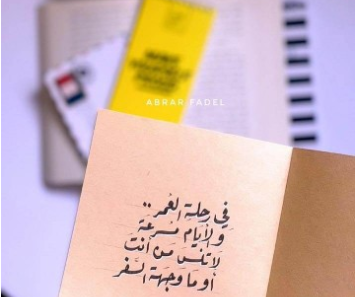 ABRAR FADEL
في رحلة العمر..
والأيام مسرعة
لا تنس من أنت
أو ما وجهة السفر